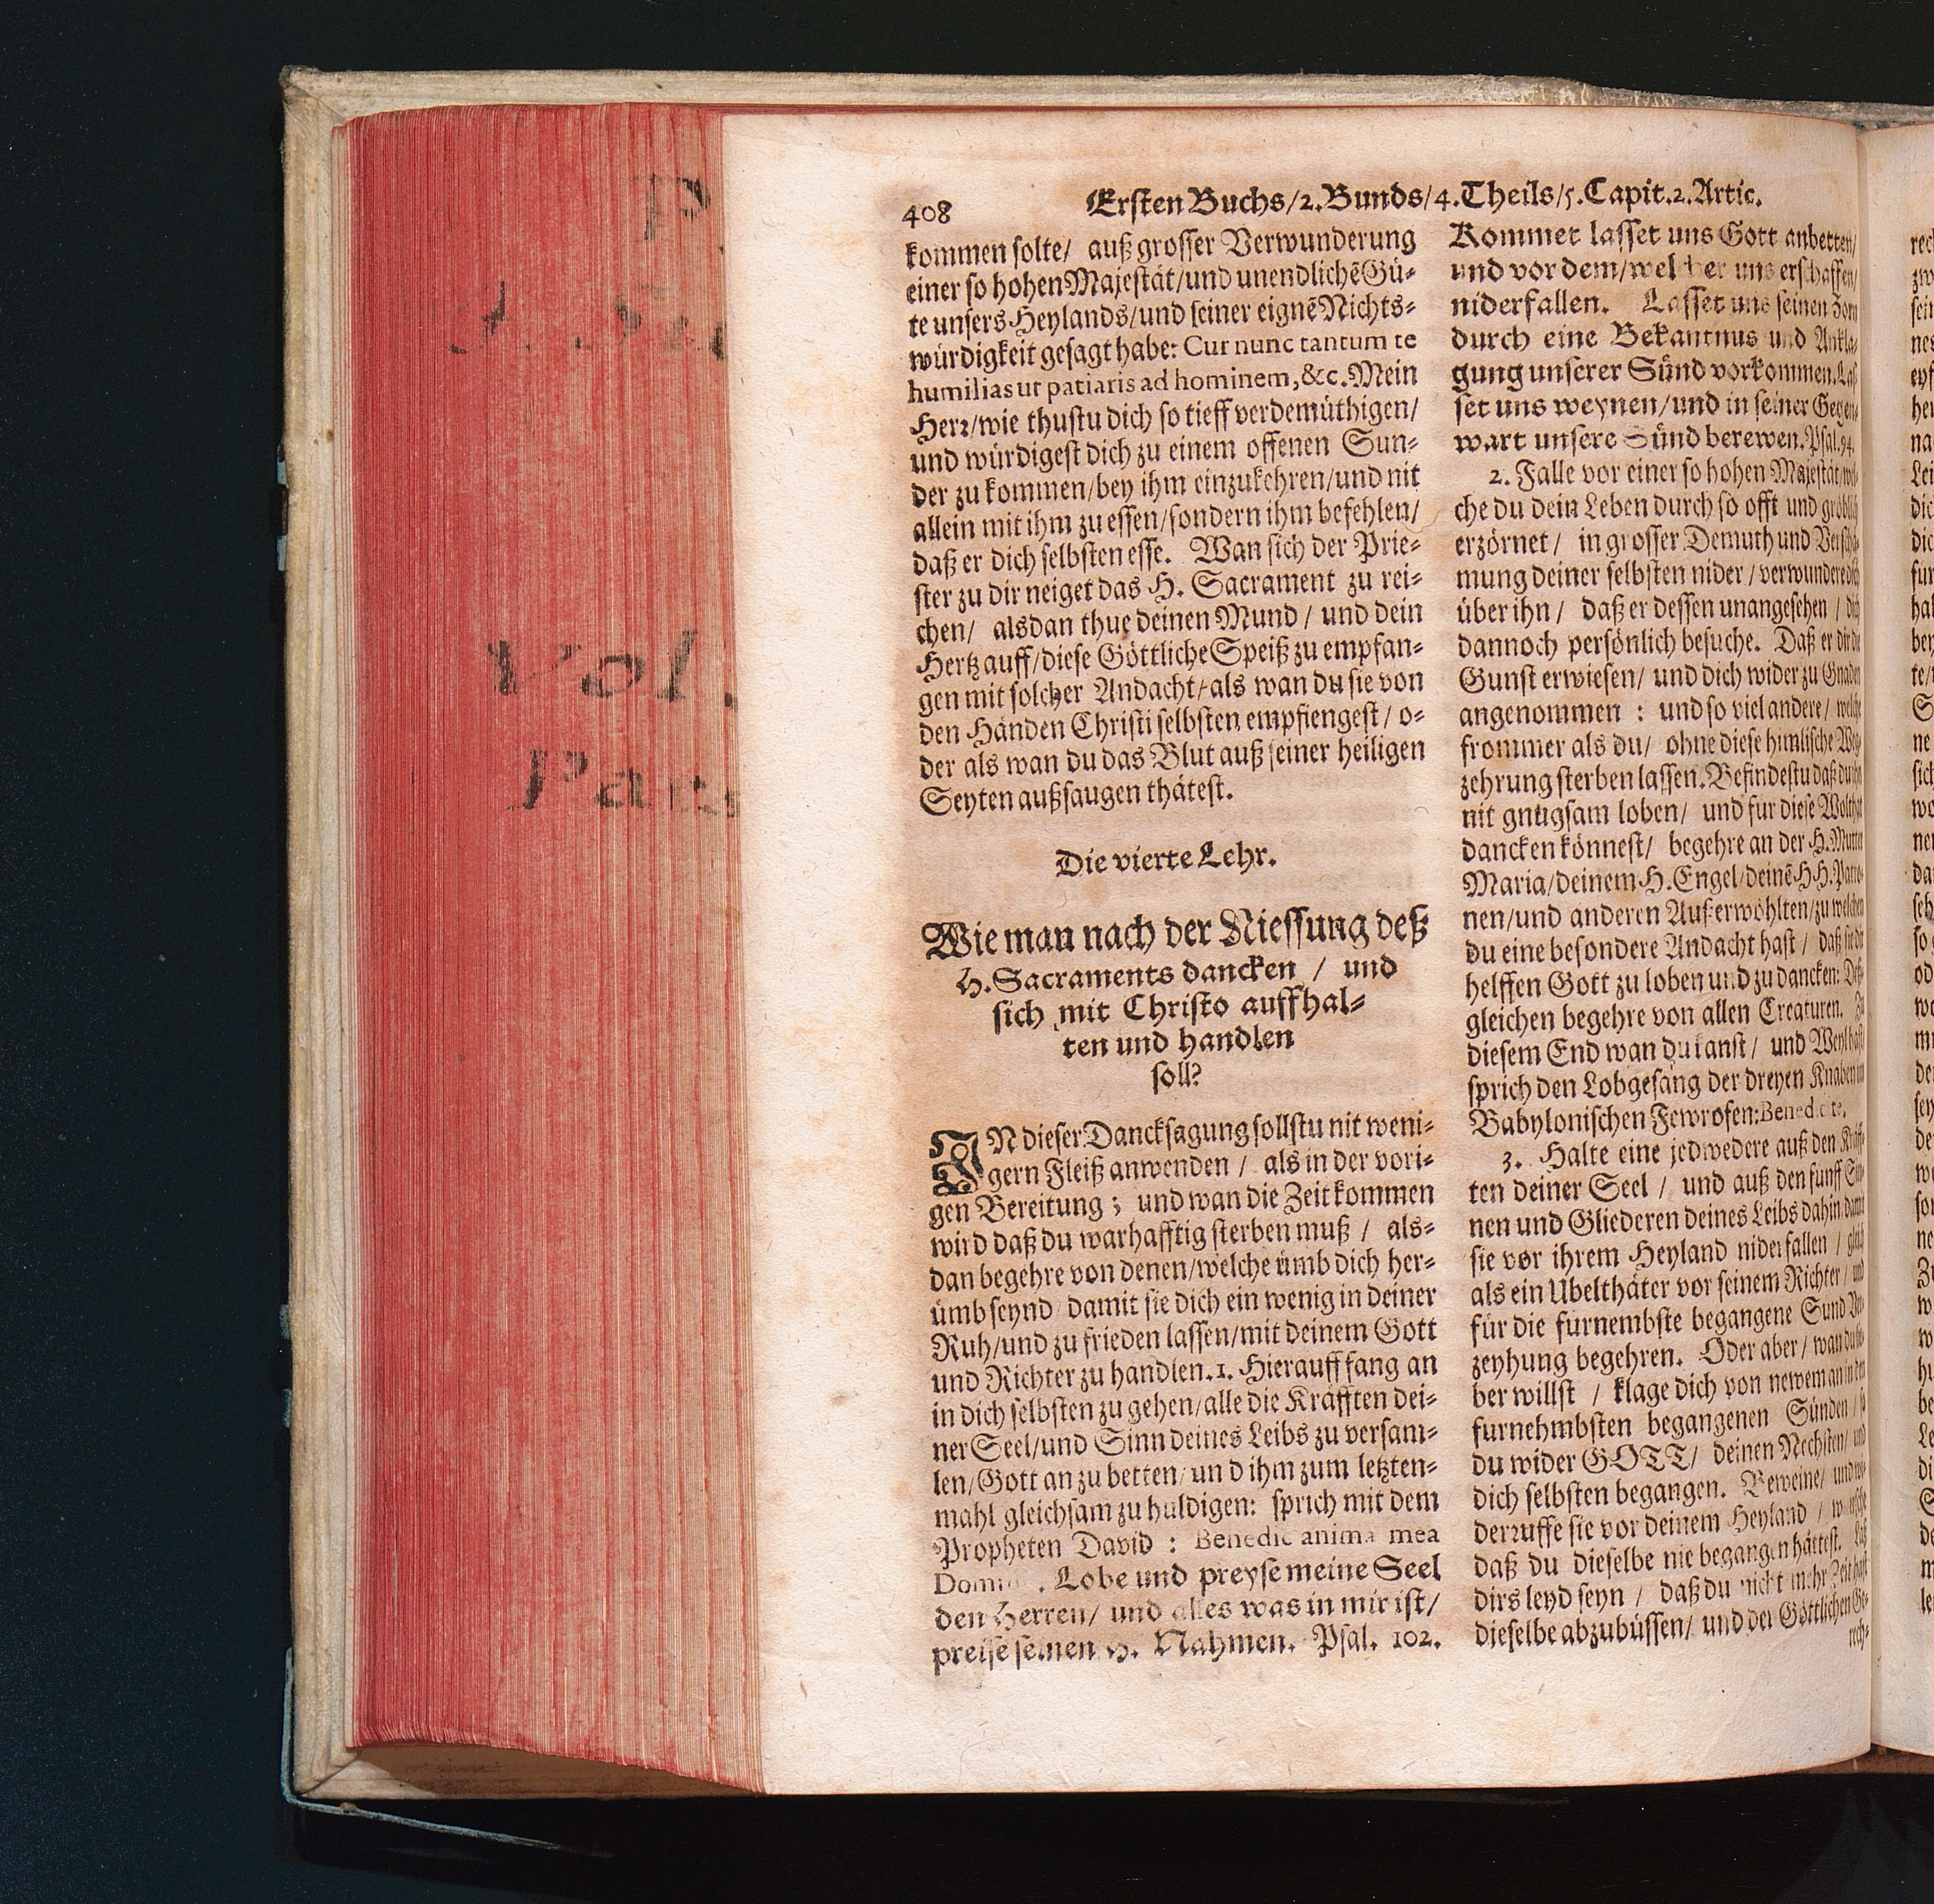 408
Ersten Buchs/2.Bunds/4.Theils/5.Capit.2.Artic.
kommen solte/ auß grosser Verwunderung
einer so hohen Majestät/und unendlichē Gü-
te unsers Heylands/und seiner eignē Nichts-
würdigkeit gesagt habe: Cur nunc tantum te
humilias ut patiaris ad hominem, &c. Mein
Herr/wie thustu dich so tieff verdemüthigen/
und würdigest dich zu einem offenen Sun-
der zu kommen/bey ihm einzukehren/und nit
allein mit ihm zu essen/sondern ihm befehlen/
daß er dich selbsten esse. Wan sich der Prie-
ster zu dir neiget das H. Sacrament zu rei-
chen/ alsdan thue deinen Mund/ und dein
Hertz auff/diese Göttliche Speiß zu empfan-
gen mit solcher Andacht/als wan du sie von
den Händen Christi selbsten empfiengest/ o-
der als wan du das Blut auß seiner heiligen
Seyten außsaugen thätest.
Die vierte Lehr.
Wie man nach der Niessung deß
H. Sacraments dancken / und
sich mit Christo auffhal-
ten und handlen
soll?
IN dieser Dancksagung sollstu nit weni-
gern Fleiß anwenden / als in der vori-
gen Bereitung ; und wan die Zeit kommen
wird daß du warhafftig sterben muß / als-
dan begehre von denen/welche ümb dich her-
ümb seynd/ damit sie dich ein wenig in deiner
Ruh/und zu frieden lassen/mit deinem Gott
und Richter zu handlen. 1. Hierauff fang an
in dich selbsten zu gehen/alle die Kräfften dei-
ner Seel/und Sinn deines Leibs zu versam-
len/Gott an zu betten/ und ihm zum letzten-
mahl gleichsam zu huldigen: sprich mit dem
Propheten David : Benedic anima mea
Lobe und preyse meine Seel
den Herren/ und alles was in mir ist/
preise seinen H. Nahmen. Psal. 102.
Kommet lasset uns Gott anbetten/
und vor dem/welcher uns erschaffen/
niderfallen. Lasset uns seinen Zorn
durch eine Bekantnus und Ankla-
gung unserer Sünd vorkommen. Las-
set uns weynen/und in seiner Gegen-
wart unsere Sünd berewen. Psal. 94.
2. Falle vor einer so hohen Majestät/wel-
che du dein Leben durch so offt und gröblich
erzörnet/ in grosser Demuth und Verschä-
mung deiner selbsten nider / verwundere dich
über ihn/ daß er dessen unangesehen / dich
dannoch persönlich besuche. Daß er dir die
Gunst erwiesen/ und dich wider zu Gnaden
angenommen : und so viel andere/ welche
frommer als du/ ohne diese himlische Weg-
zehrung sterben lassen. Befindestu daß du ihn
nit gnugsam loben/ und für diese Wolthat
dancken könnest/ begehre an der H. Mutter
Maria/deinem H. Engel/deinē HH. Patro-
nen/und anderen Außerwöhlten/zu welchen
du eine besondere Andacht hast / daß sie dir
helffen Gott zu loben und zu dancken: Deß-
gleichen begehre von allen Creaturen. Zu
diesem End wan du kanst/ und Weyl hast
sprich den Lobgesang der dreyen Knaben im
Babylonischen Fewrofen: Benedicite.
3. Halte eine jedwedere auß den Kräff-
ten deiner Seel / und auß den fünff Sin-
nen und Gliederen deines Leibs dahin damit
sie vor ihrem Heyland niderfallen / gleich
als ein Ubelthäter vor seinem Richter / und
für die furnembste begangene Sund Ver-
zeyhung begehren. Oder aber / wan du lie-
ber willst / klage dich von newem an in den
furnehmbsten begangenen Sünden / so
du wider GOTT/ deinen Nechsten/ und
dich selbsten begangen. Beweine/ und wi-
derruffe sie vor deinem Heyland / wünsche
daß du dieselbe nie begangen hättest. Laß
dirs leyd seyn / daß du nicht mehr Zeit hast
dieselbe abzubüssen/ und der Göttlichen Ge-
rech-
Vol.